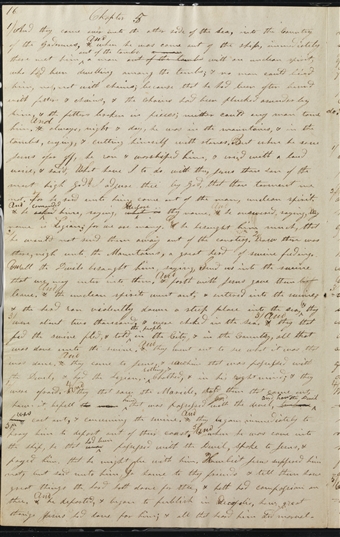 16
Chapter 5
And they came over unto the other side of the sea, into the country
of the Gadarenes, & when he was come out of the ship, immediately
there met him, a man out of the tombs with an unclean spirit,
who had been dwelling among the tombs, & no man could bind
him, no, not with chains; because that he had been often bound
with fetters & chains, & the chains had been plucked asunder by
him, & the fetters broken in pieces; neither could any man tame
him, & always, night & day, he was in the mountains, & in the
tombs, crying, & cutting himself with stones, But when he saw
Jesus afar off, he ran & worshiped him, & cried with a loud
voice, & said, What have I to do with thee, Jesus thou son of the
most high God, I adjure thee by God, that thou torment me
not, for he said unto him, come out of the man, unclean spirit
& he him, saying, thy name, & he answered, saying, My
name is Legion; for we are many, & he besought him much, that
he would not send them away out of the country, Now there was
there, nigh unto the Mountains, a great herd of swine feeding,
& all the Devils besought him saying, Send us into the swine
that we may enter into them, & forth with Jesus gave them
leave, & the unclean spirits went out, & entered into the swine,
& the herd ran violently down a steep place into the sea, they
were about two thousand, & were choked in the sea, & they that
fed the swine fled, & told in the City, & in the country, all that
was done unto the swine, & they went out to see what it was that
was done, & they came to Jesus, & that was possessed with
the devil, & had the Legion, sitting, & clothed, & in his right mind, & they
were afraid, & they that saw the Miracle, told them that came out
how it befell that was possessed with the devil,
was cast out, & concerning the swine, & they began immediately to
pray him to depart out of their coast, & when he was come into
the ship, he that had been possessed with the devil, spoke to Jesus, &
prayed him that he might be with him, Howbeit Jesus suffered him
not, but said unto him, Go home to thy friends & tell them how
great things the Lord hath done for thee, & hath had compassion on
thee, & he departed, & began to publish in Decapolis, how great
things Jesus had done for him, & all that heard him did marvel.